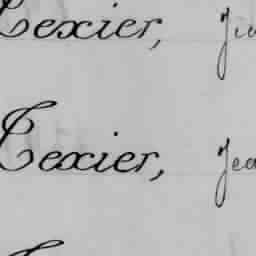 Texier,
Texier, Jea